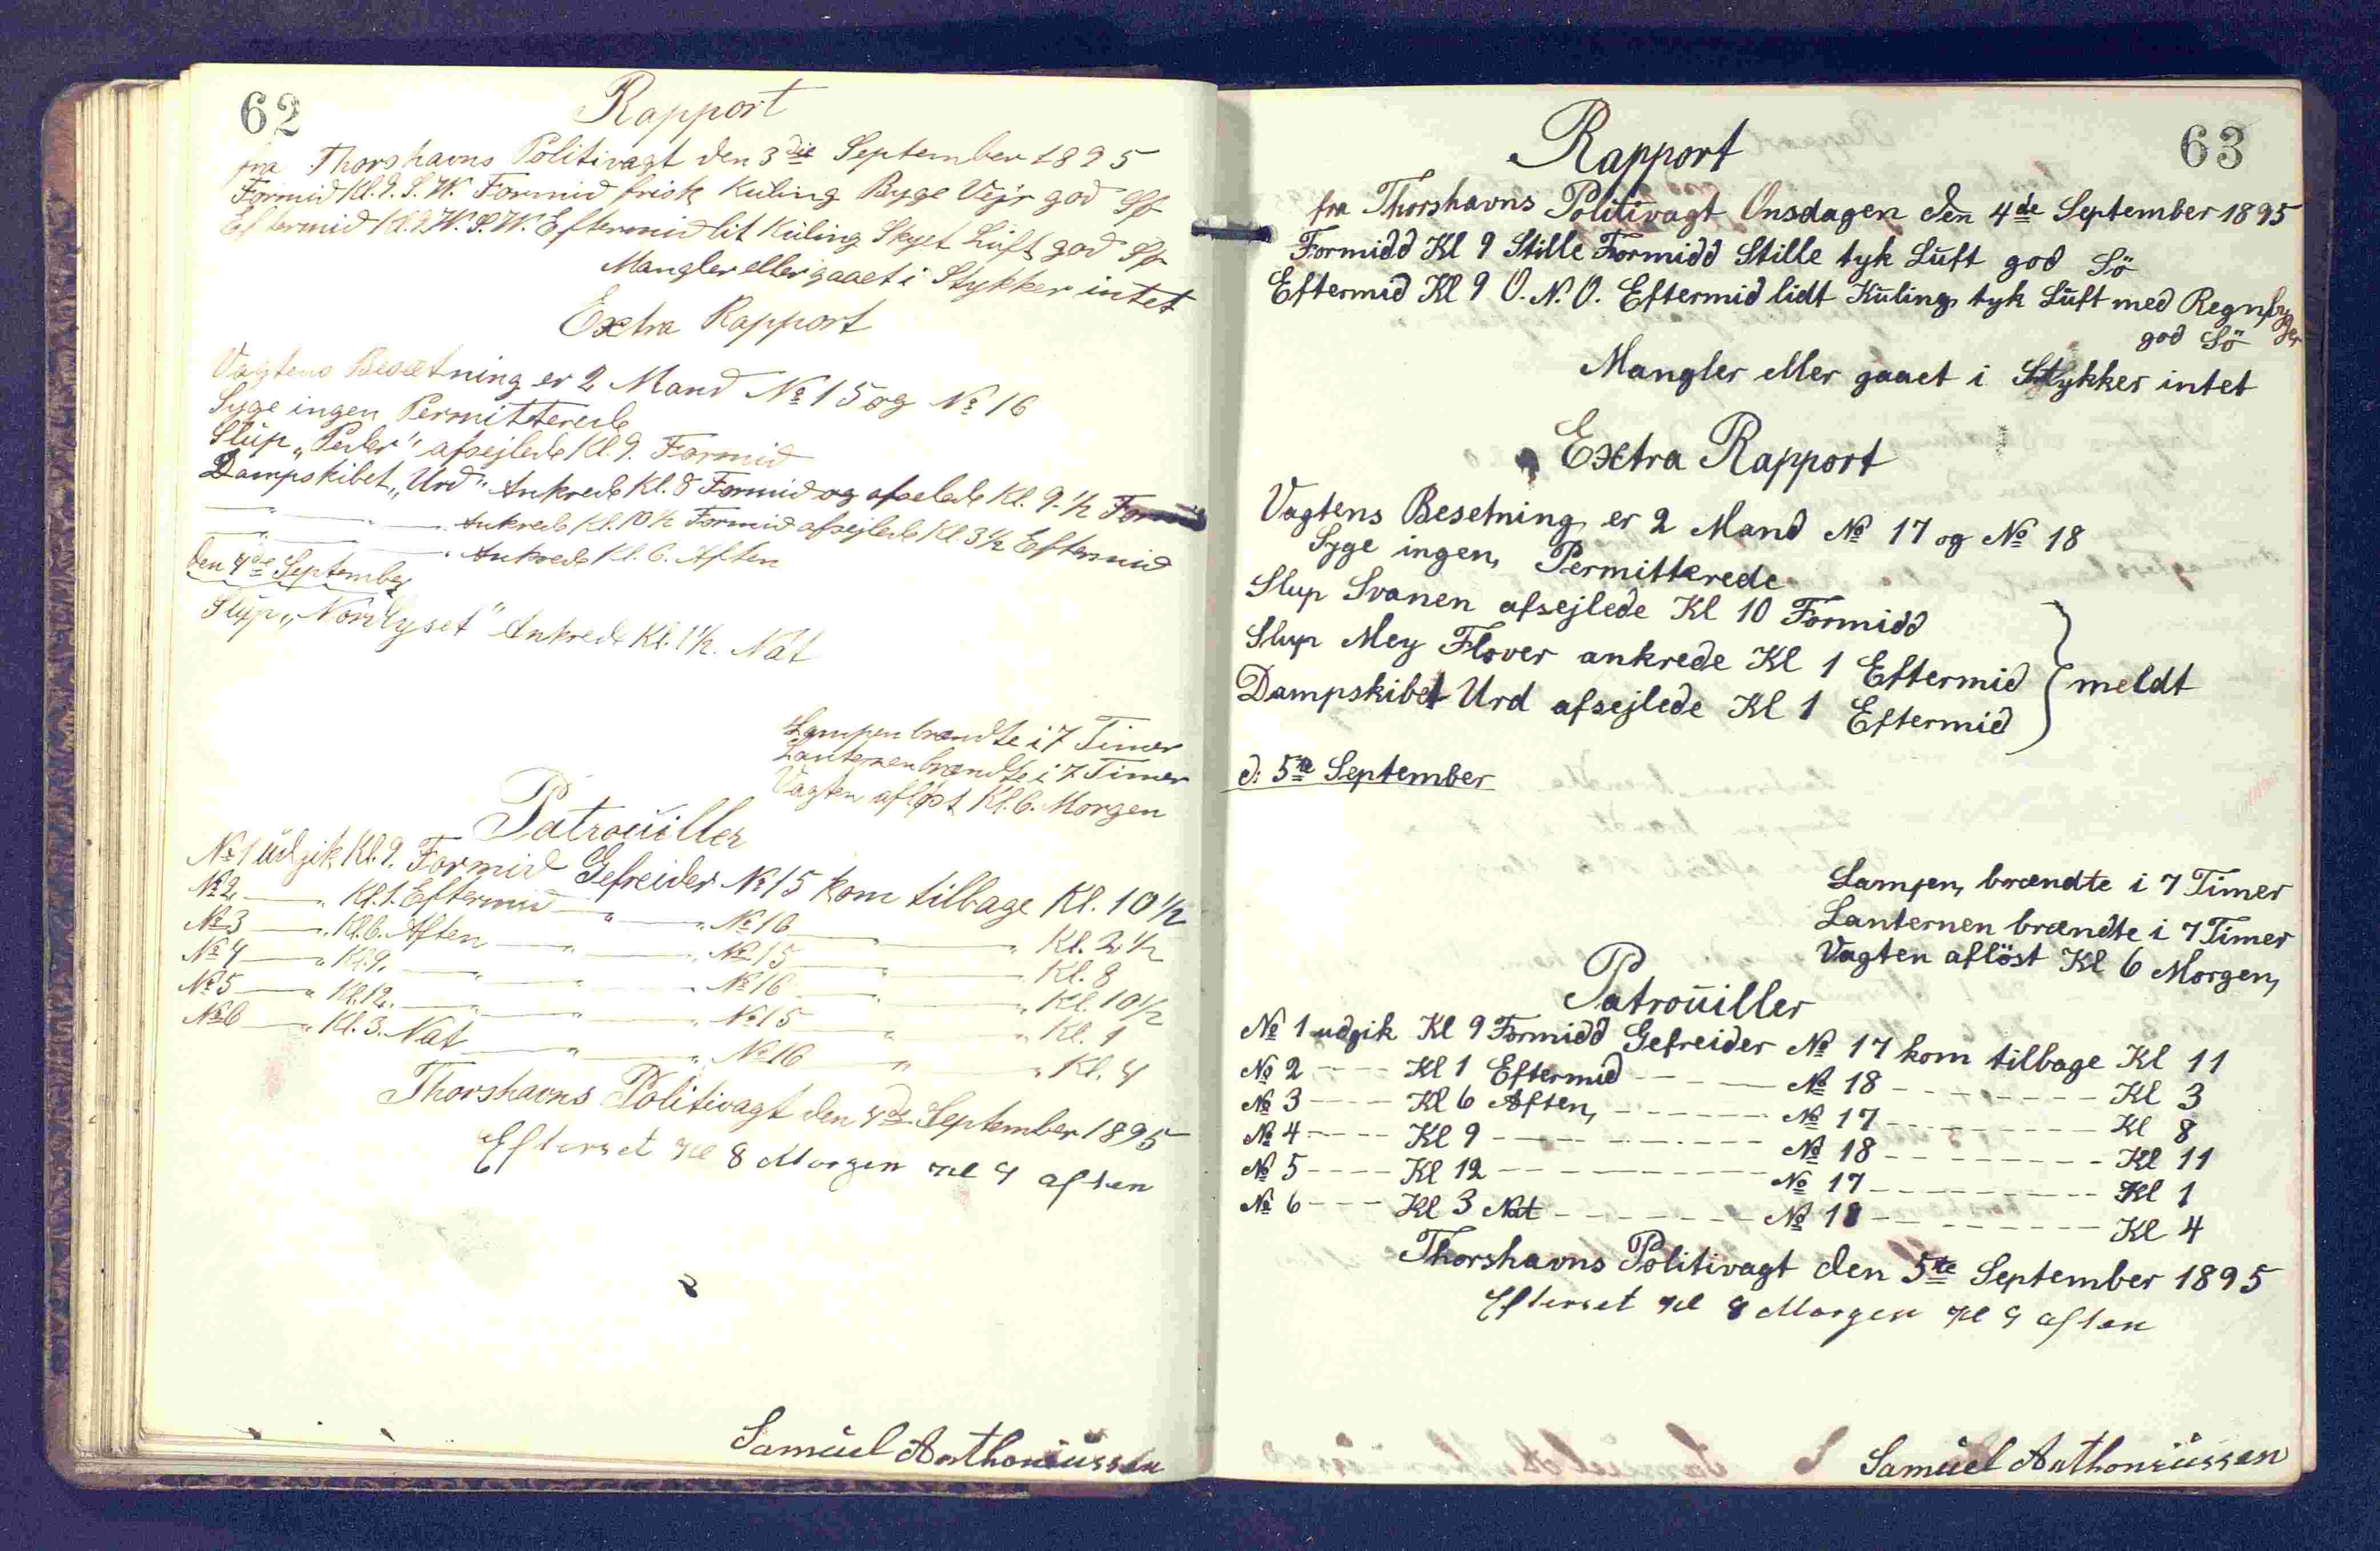 62
Rapport
fra Thorshavns Politivagt den 3die September 1895
Formid Kl. 9. S. W. Formid frisk Kuling Byge Vejr god Sø
Eftermid Kl. 9 W. S. W. Eftermid lit Kuling Skyet Luft god Sø
Mangler eller gaaet i Stykker intet
Extra Rapport
Vagtens Besætning er 2 Mand № 15 og № 16
Syge ingen Permitterede
Slup „Peder" afsejlede Kl. 9. Formid
Dampskibet „Urd" Ankrede Kl. 8 Formid og afselede Kl. 9. ½ Formid
— „ — „ — Ankrede Kl. 10½ Formid afsejlede Kl. 3½ Eftermid
— „ — „ — Ankrede Kl. 6. Aften
den 4de September
Slup „Nordlyset" Ankrede Kl. 1½. Nat
Lampen brændte i 7 Timer
Lanternen brændte i 7 Timer
Vagten afløst Kl. 6. Morgen
Patrouiller
№ 1 udgik Kl. 9. Formid Gefreider № 15 kom tilbage Kl. 10½
№ 2 — „ Kl. 1. Eftermid — „ — „ № 16 — „ — „ Kl. 2½
№ 3 — „ Kl. 6. Aften — „ — „ № 15 — „ — „ Kl. 8
№ 4 — „ Kl. 9. — „ — „ № 16 — „ — „ Kl. 10½
№ 5 — „ Kl. 12. — „ — „ № 15 — „ — „ Kl. 1
№ 6 — „ Kl. 3. Nat — „ — „ № 16 — „ — „ Kl. 4
Thorshavns Politivagt den 4de September 1895
Efterset Kl 8 Morgen Kl 9 aften
Samuel Anthoniussen
63
Rapport
fra Thorshavns Politivagt Onsdagen den 4de September 1895
Formidd Kl 9 Stille Formidd Stille tyk Luft god Sö
Eftermid Kl 9 O. N. O. Eftermid lidt Kuling tyk Luft med Regnbyger
god Sö
Mangler eller gaaet i Stykker intet
Extra Rapport
Vagtens Besetning er 2 Mand № 17 og № 18
Syge ingen, Permitterede
Slup Svanen afsejlede Kl 10 Formidd
Slup Mey Flover ankrede Kl 1 Eftermid } meldt
Dampskibet Urd afsejlede Kl 1 Eftermid
d: 5te September
Lampen, brændte i 7 Timer
Lanternen brændte i 7 Timer
Vagten aflöst Kl 6 Morgen,
Patrouiller
№ 1 udgik Kl 9 Formidd Gefreider № 17 kom tilbage Kl 11
№ 2 ---- Kl 1 Eftermid ---- № 18 ---- Kl 3
№ 3 ---- Kl 6 Aften, ---- № 17 ---- Kl 8
№ 4 ---- Kl 9 ---- № 18 ---- Kl 11
№ 5 ---- Kl 12 ---- № 17 ---- Kl 1
№ 6 ---- Kl 3 Nat ---- № 18 ---- Kl 4
Thorshavns Politivagt den 5te September 1895
Efterset Kl 8 Morgen Kl 9 aften
Samuel Anthoniussen